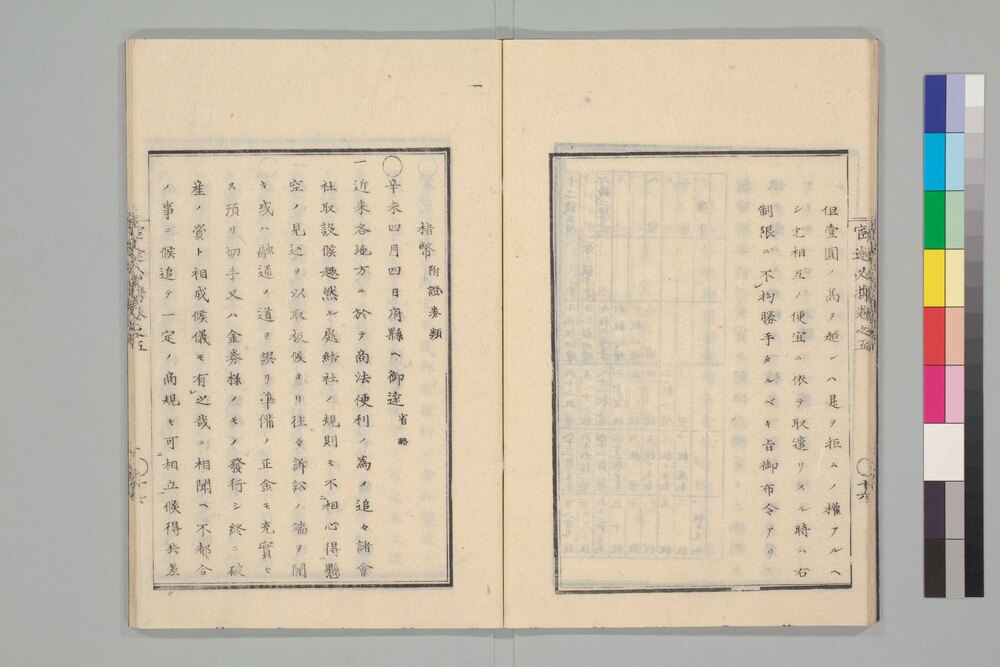 但壹圓ノ高ヲ越レハ是ヲ拒ムノ權アルヘ
シ尤相互ノ便宜ニ依テ取遣リスル時ハ右
制限ニ不拘勝手タルベキ旨御布令アリ
楮幣附證券類
○辛未四月四日府縣ヘ御達省略
一近来各地方ニ於テ商法便利ノ為メ追々諸會
社取設候趣然ル處結社ノ規則モ不相心得懸
空ノ見込ヲ以取扱候ヨリ往々訴訟ノ端ヲ開
キ或ハ融通ノ道ヲ誤リ準備ノ正金モ充實セ
ス預リ切手又ハ金券様ノモノ發行シ終ニ破
産ノ資ト相成候儀モ有之哉ニ相聞ヘ不都合
ノ事ニ候追テ一定ノ商規モ可相立候得共差